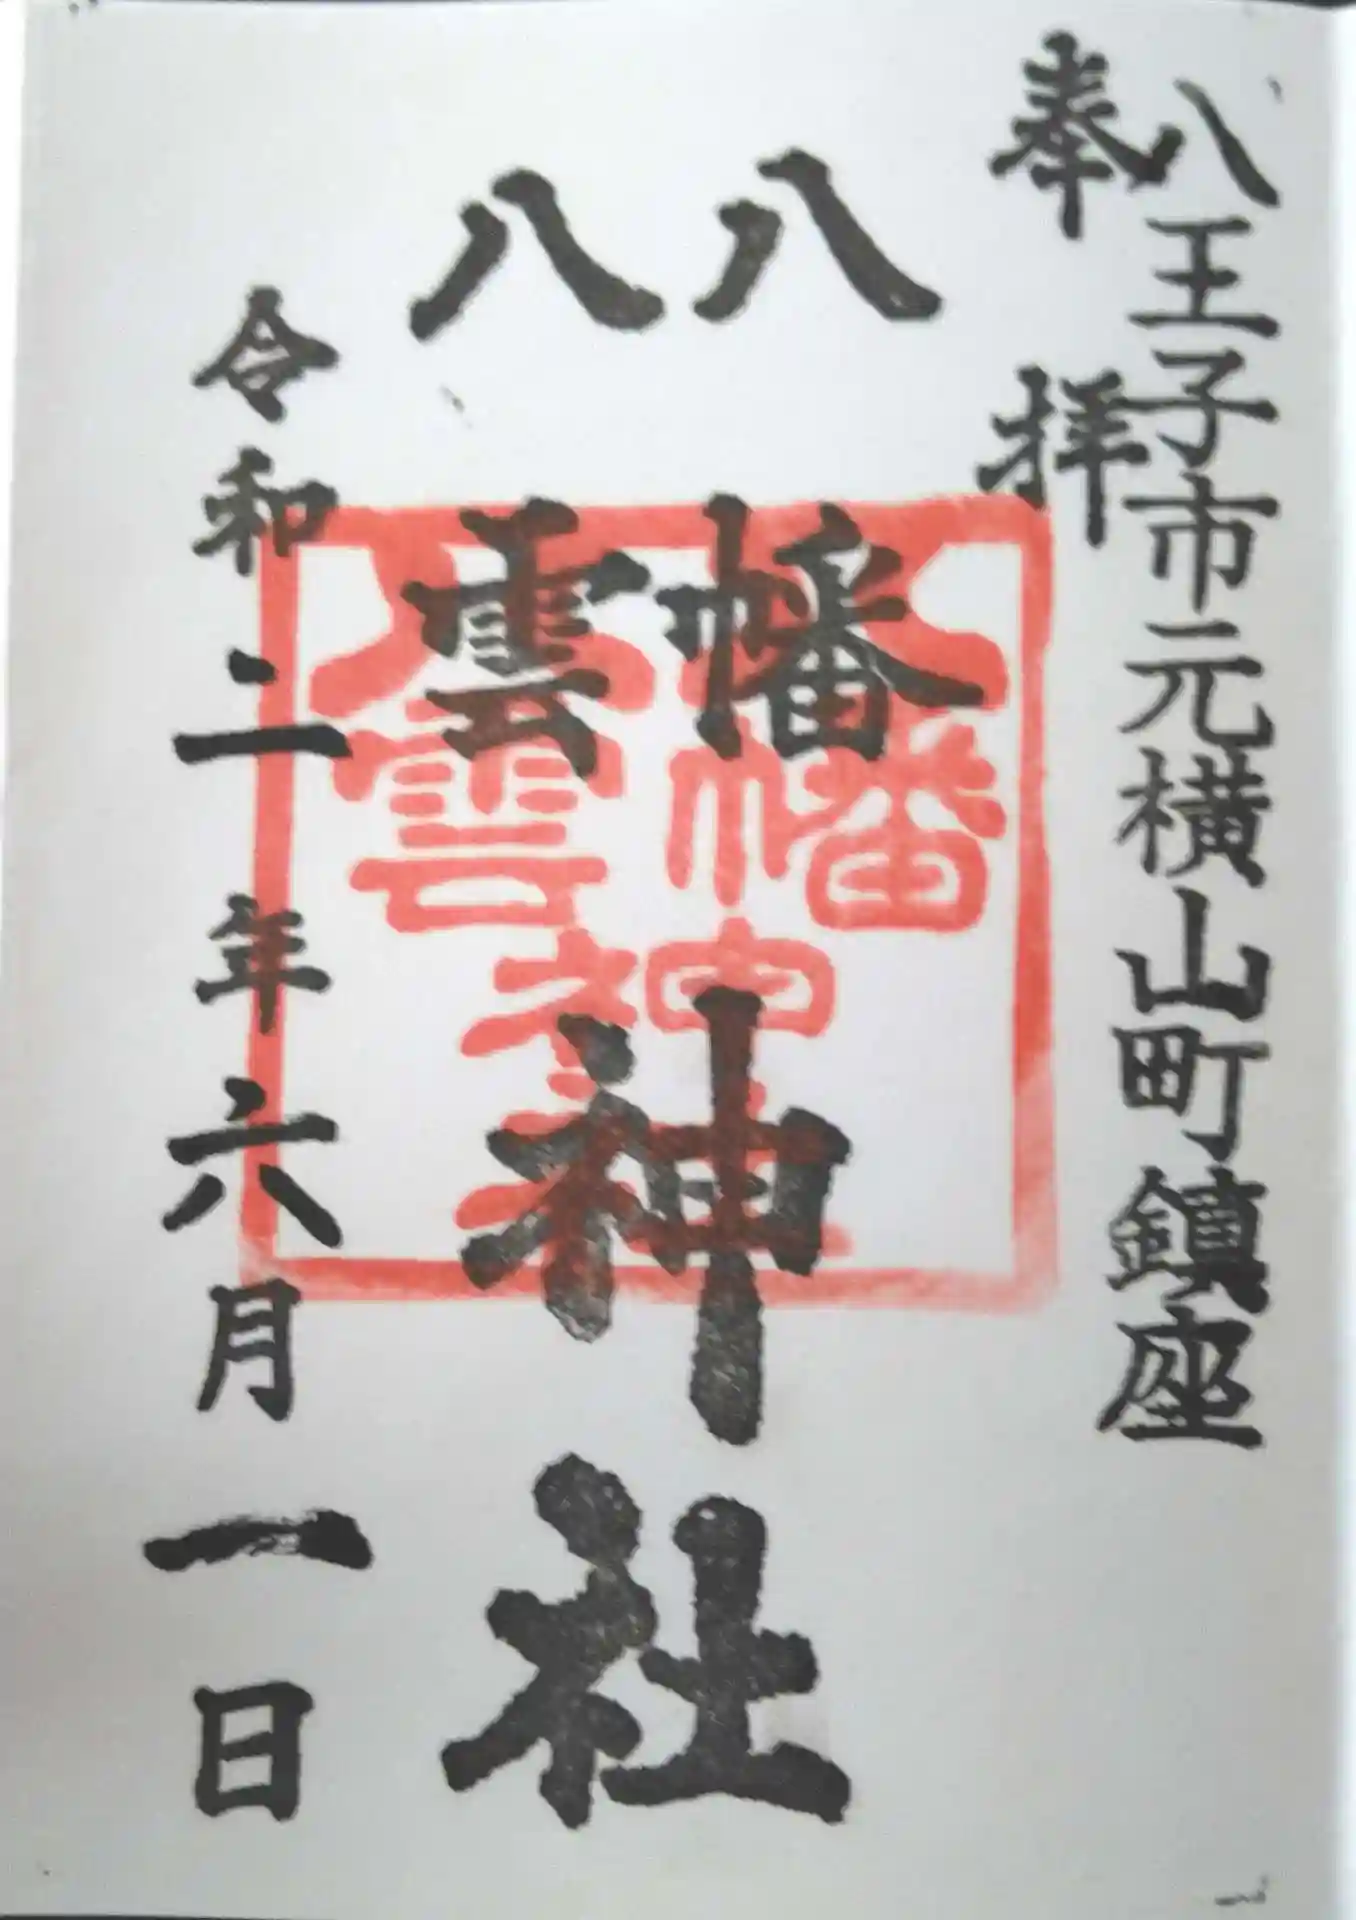 八王子市元横山町鎮座
奉拝
八幡
八雲
神社
八幡
八雲
神社
令和二年六月一日